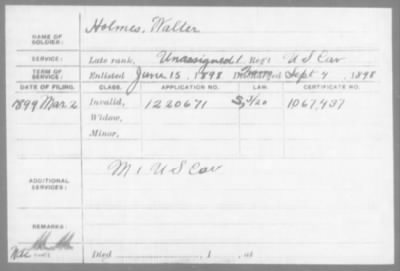 NAME OF SOLDIER: Holmes, Walter
SERVICE: Late rank, Unassigned Reg't U S Cav
TERM OF SERVICE: Enlisted June 15, 1898 Discharged Sept 4, 1898
DATE OF FILING. CLASS. APPLICATION NO. LAW. CERTIFICATE NO.
1899 Mar 2 Invalid, 1220671 1067,437
Widow,
Minor,
ADDITIONAL SERVICES: M 1 U S Cav
REMARKS:
Died , 1 , at